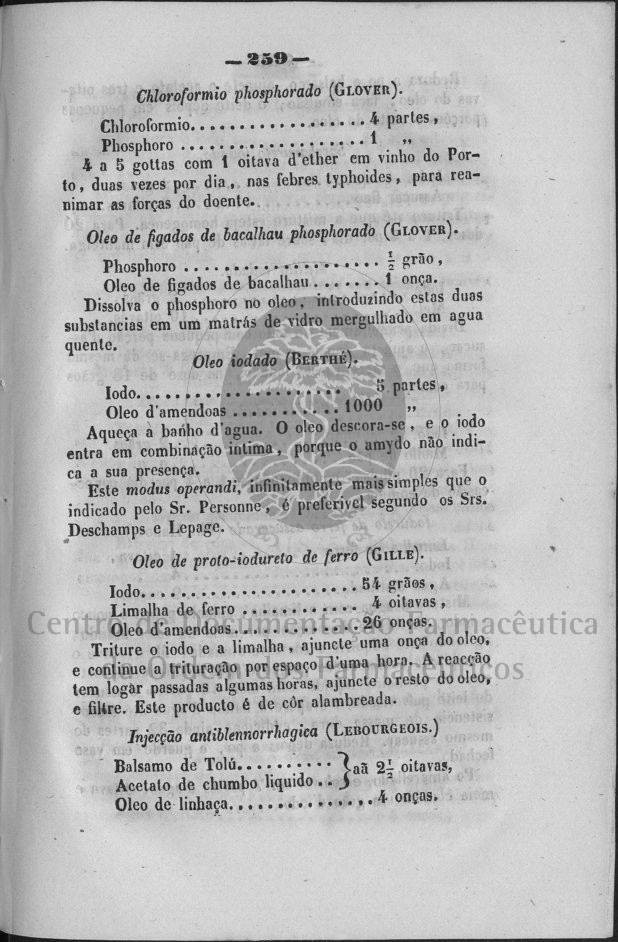 — 259 —
Chloroformio phosphorado (GLOVER).
Chloroformio. . . . . . . . . . . . . . . . . . . 4 partes,
Phosphoro . . . . . . . . . . . . . . . . . . . . 1 „
4 a 5 gottas com 1 oitava d'ether em vinho do Por-
to, duas vezes por dia, nas febres typhoides, para rea-
nimar as forças do doente.
Oleo de figados de bacalhau phosphorado (GLOVER).
Phosphoro . . . . . . . . . . . . . . . . . . . . ½ grão,
Oleo de figados de bacalhau . . . . . . . 1 onça.
Dissolva o phosphoro no oleo, introduzindo estas duas
substancias em um matrás de vidro mergulhado em agua
quente.
Oleo iodado (BERTHÉ).
Iodo. . . . . . . . . . . . . . . . . . . . . 5 partes,
Oleo d'amendoas . . . . . . . . . . . 1000 „
Aqueça a banho d'agua. O oleo descora-se, e o iodo
entra em combinação intima, porque o amydo não indi-
ca a sua presença.
Este modus operandi, infinitamente mais simples que o
indicado pelo Sr. Personne, é preferivel segundo os Srs.
Deschamps e Lepage.
Oleo de proto-iodureto de ferro (GILLE).
Iodo. . . . . . . . . . . . . . . . . . . . . . . 54 grãos,
Limalha de ferro . . . . . . . . . . . . 4 oitavas,
Oleo d'amendoas. . . . . . . . . . . . . 26 onças.
Centro de Documentação Farmacêutica
Triture o iodo e a limalha, ajuncte uma onça do oleo,
e continue a trituração por espaço d'uma hora. A reacção
da Ordem dos Farmacêuticos
tem logar passadas algumas horas, ajuncte o resto do oleo,
e filtre. Este producto é de côr alambreada.
Injecção antiblennorrhagica (LEBOURGEOIS.)
Balsamo de Tolú. . . . . . . . . . } aã 2½ oitavas,
Acetato de chumbo liquido . . }
Oleo de linhaça. . . . . . . . . . . . . . . 4 onças.